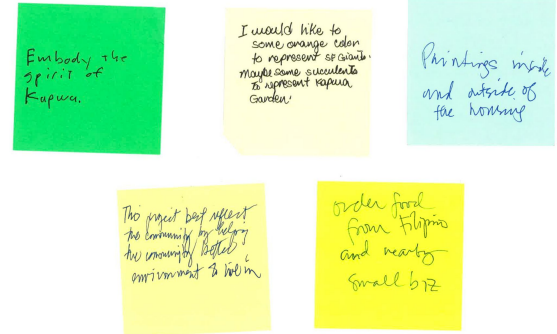 Embody the
spirit of
Kapwa.
I would like to
some orange color
to represent SF Giants.
Maybe some succulents
to represent Kapwa
Garden.
Paintings inside
and outside of
the housing
This project best reflect
the community by helping
the community better
environment to live in
order food
from Filipino
and nearby
small biz